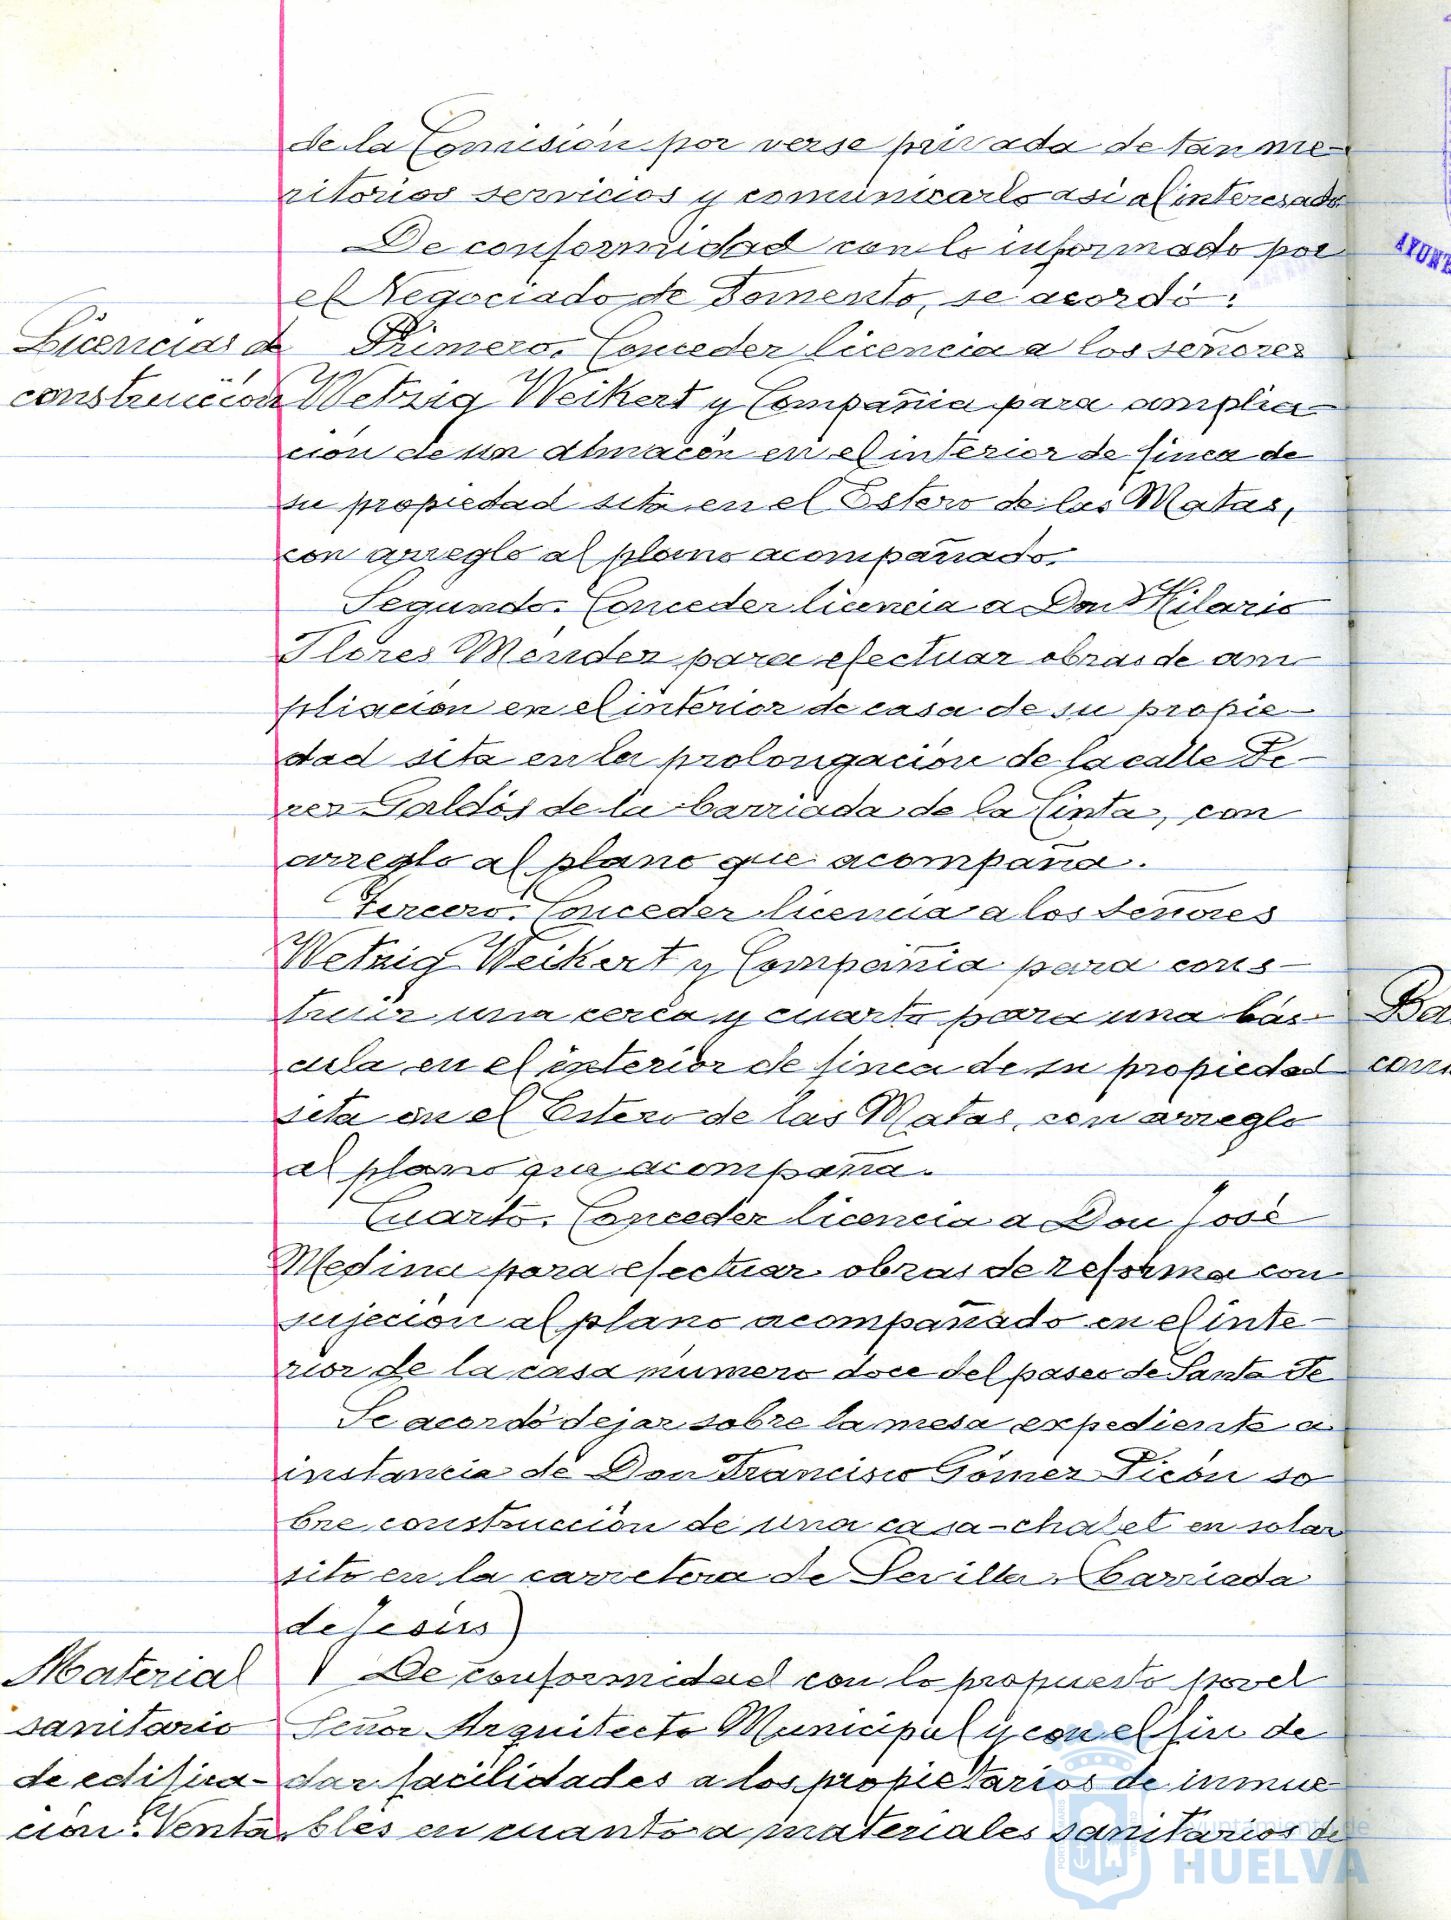 de la Comisión por verse privada de tan me-
ritorios servicios y comunicarlo asi al interesado.
De conformidad con lo informado por
el Negociado de Fomento, se acordó:
Licencias de
construcción
Primero. Conceder licencia a los señores
Wetzig Weikert y Compañia para amplia-
ción de un almacén en el interior de finca de
su propiedad sita en el Estero de las Matas,
con arreglo al plano acompañado.
Segundo. Conceder licencia a Don Hilario
Flores Méndez para efectuar obras de am
pliación en el interior de casa de su propie-
dad sita en la prolongación de la calle Pe-
rez Galdós de la barriada de la Cinta, con
arreglo al plano que acompaña.
Tercero. Conceder licencia a los señores
Wetzig Weikert y Compañia para cons-
truir una cerca y cuarto para una bás-
cula en el interior de finca de su propiedad
sita en el Estero de las Matas, con arreglo
al plano que acompaña.
Cuarto. Conceder licencia a Don José
Medina para efectuar obras de reforma con
sujeción al plano acompañado en el inte-
rior de la casa número doce del paseo de Santa Fe
Se acordó dejar sobre la mesa expediente a
instancia de Don Francisco Gómez Picón so
bre construcción de una casa-chalet en solar
sito en la carretera de Sevilla (barriada
de Jesús)
Material
sanitario
de edifica-
ción. Venta.
De conformidad con lo propuesto por el
Señor Arquitecto Municipal y con el fin de
dar facilidades a los propietarios de inmue
bles en cuanto a materiales sanitarios de
Ayuntamiento de
HUELVA